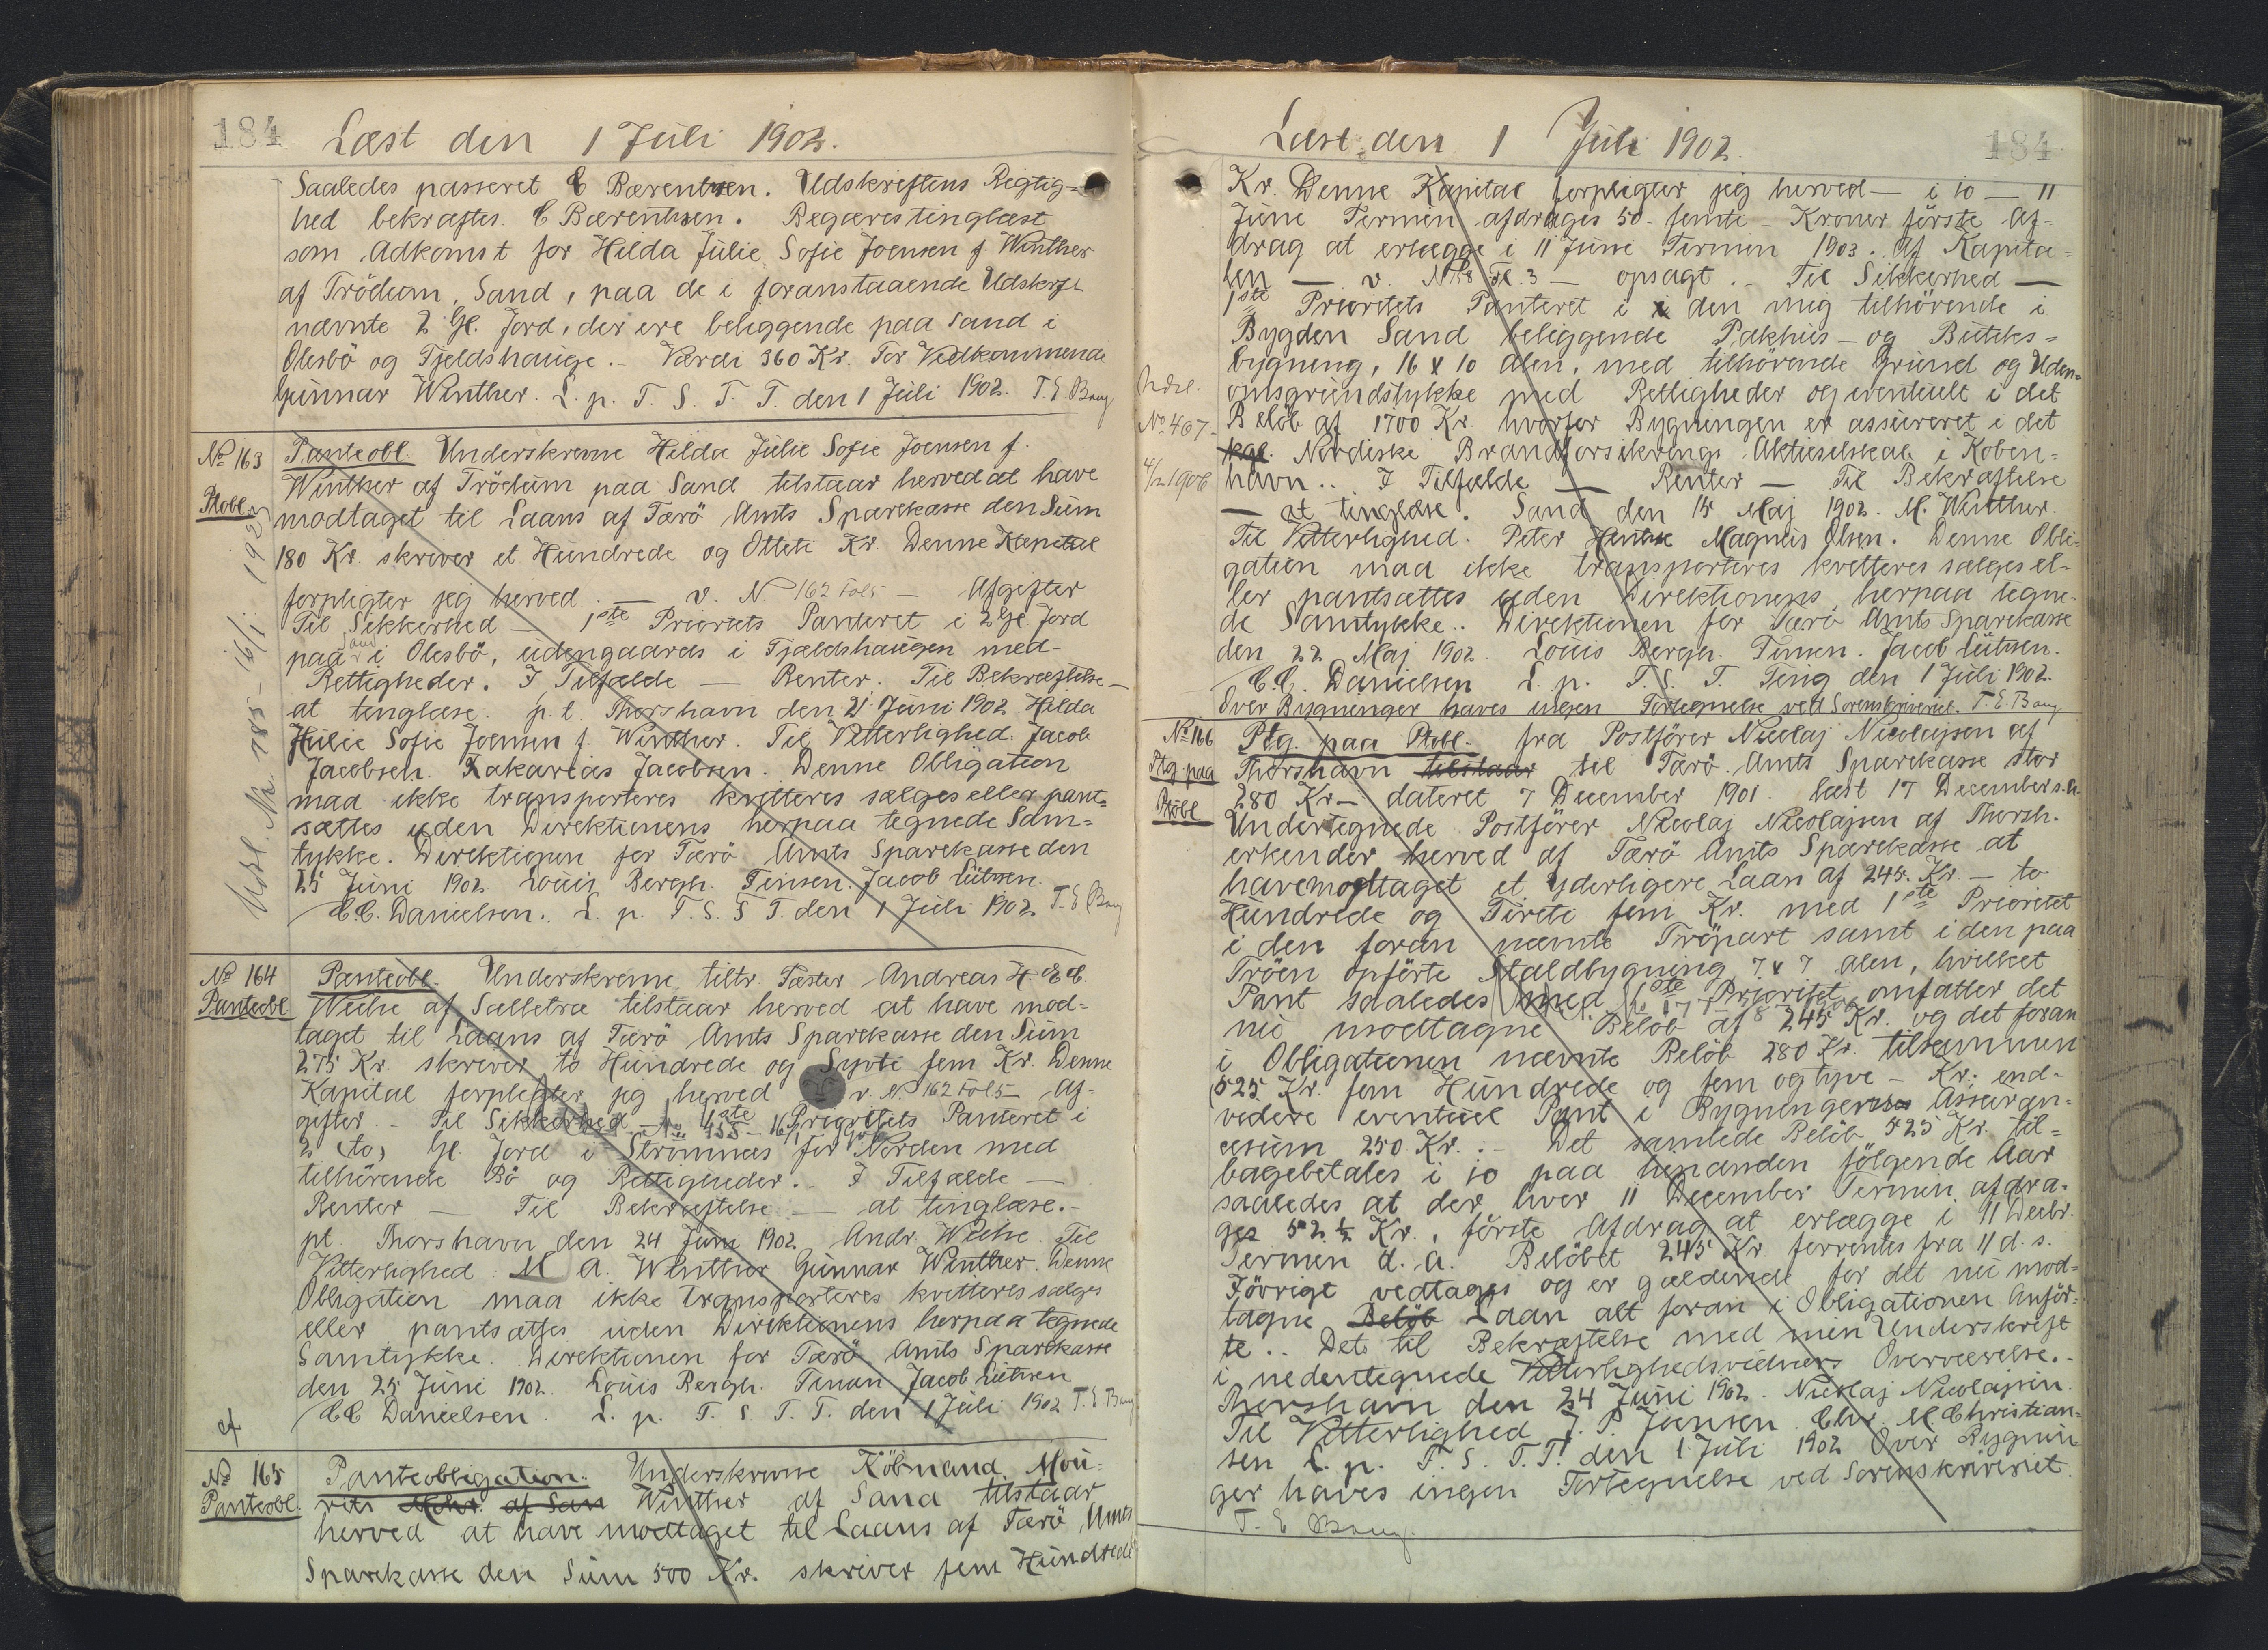 184
Læst den 1 Juli 1902.
Saaledes passeret C Bærentsen. Udskriftens Rigtig=
hed bekræftes. C Bærentsen. Begæres tinglæst
som Adkomst for Hilda Julie Sofie Joensen f. Winther
af Trödum, Sand, paa de i foranstaaende Udskrift
nævnte 2 Gl. Jord, der ere beliggende paa Sand i
Olesbö og Fjeldshauge. - Værdi 360 Kr. For Vedkommende
Gunnar Winther. L. p. F. S. T. T. den 1 Juli 1902. T. E. Bang
No 163
Ptobl.
Panteobl. Underskrevne Hilda Julie Sofie Joensen f.
Winther af Trödum paa Sand tilstaar herved at have
modtaget til Laans af Færö Amts Sparekasse den Sum
180 Kr. skriver et Hundrede og Otteti Kr. Denne Kapital
forpligter jeg herved. — v. N. 162 Fol 5 — Afgifter
Til Sikkerhed — 1ste Prioritets Panteret i 2 Gl. Jord
paa Sand i Olesbö, udengaards i Fjældshaugen med
Rettigheder. I Tilfælde — Renter. Til Bekræftelse —
at tinglæse. p. t. Thorshavn den 21 Juni 1902. Hilda
Julie Sofie Joensen f. Winther. Til Vitterlighed. Jacob
Jacobsen. Zakarias Jacobsen. Denne Obligation
maa ikke transporteres kvitteres sælges eller pant=
sættes uden Direktionens herpaa tegnede Sam=
tykke. Direktionen for Færö Amts Sparekasse den
25 Juni 1902. Louis Bergh. Finsen. Jacob Lützen.
C.C. Danielsen. L. p. F. S. T. T. den 1 Juli 1902 T. E. Bang
No 164
Panteobl
Panteobl. Underskrevne tiltr. Fæster Andreas H. E. C.
Weihe af Sælletræ tilstaar herved at have mod-
taget til Laans af Færö Amts Sparekasse den Sum
275 Kr. skriver to Hundrede og Syvti fem Kr. Denne
Kapital forpligter jeg herved v. N. 162 Fol 5 — Af-
gifter. - Til Sikkerhed — 1ste Prioritets Panteret i
2 (to) Gl. Jord i Strömnæs for Norden med
tilhörende Bö og Rettigheder. - I Tilfælde —
Renter — Til Bekræftelse — at tinglæse. -
pt. Thorshavn den 24 Juni 1902 Andr. Weihe. Til
Vitterlighed M A. Winther Gunnar Winther. Denne
Obligation maa ikke transporteres kvitteres sælges
eller pantsættes uden Direktionens herpaa tegnede
Samtykke. Direktionen for Færö Amts Sparekasse
den 25 Juni 1902. Louis Bergh. Finsen Jacob Lützen
CC Danielsen. L. p. F. S. T. T. den 1 Juli 1902 T. E Bang
No 165
Panteobl.
Panteobligation. Underskrevne Köbmand Mou-
rits Mohr. af San Winther af Sand tilstaar
herved at have modtaget til Laans af Færö Amts
Sparekasse den Sum 500 Kr. skriver fem Hundrede
Læst den 1 Juli 1902.
184
Kr. Denne Kapital forpligter jeg herved — i 10 — 11
Juni Termin afdrages 50 - femti - Kroner förste Af-
drag at erlægge i 11 Juni Termin 1903. Af Kapita=
len — v. Fl. 3 — opsagt. - Til Sikkerhed —
1ste Prioritets Panteret i den mig tilhörende i
Bygden Sand beliggende Pakhus- og Butiks=
bygning, 16 x 10 Alen, med tilhörende Grund og Uden=
omsgrundstykke med Rettigheder og eventuelt i det
Belöb af 1700 Kr. hvorfor Bygningen er assureret i det
kgl. Nordiske Brandforsikrings Aktieselskab i Köben=
havn. . I Tilfælde — Renter — Til Bekræftelse
— at tinglæse. Sand den 15 Maj 1902. M. Winther.
Til Vitterlighed. Peter Magnus Olsen. Denne Obli=
gation maa ikke transporteres kvitteres sælges el-
ler pantsættes uden Direktionens herpaa tegne-
de Samtykke. . Direktionen for Færö Amts Sparekasse
den 22 Maj 1902. Louis Bergh. Finsen. Jacob Lützen.
C. C. Danielsen L. p. F. S. T. Ting den 1 Juli 1902.
Over Bygninger haves ingen Fortegnelse ved Sorenskriveriet. T. E. Bang
No. 407
4/12 1906
No 166
Ptg paa
Ptobl
Ptg. paa Ptobl. fra Postförer Nicolaj Nicolajsen af
Thorshavn tilstaar til Færö Amts Sparekasse stor
280 Kr - dateret 7 December 1901. læst 17 December s. a.
Undertegnede Postförer Nicolaj Nicolajsen af Thorsh.
erkender herved af Færö Amts Sparekasse at
have modtaget et yderligere Laan af 245. Kr. - to
Hundrede og Firti fem Kr. med 1ste Prioritet
i den foran nævnte Tröpart samt i den paa
Tröen opförte Staldbygning 7 x 7 Alen, hvilket
Pant saaledes med 1ste Prioritet omfatter det
nu modtagne Belöb af 245 Kr. og det foran
i Obligationen nævnte Belöb 280 Kr. tilsammen
525 Kr. fem Hundrede og fem og tyve - Kr; end-
videre eventuel Pant i Bygningens Assuran-
cesum 250 Kr. : - Det samlede Belöb 525 Kr. til=
bagebetales i 10 paa hinanden fölgende Aar
saaledes at der hver 11 December Termin afdra-
ges 52 ½ Kr., förste Afdrag at erlægge i 11 Decbr.
Termin d. A. Belöbet 245 Kr. forrentes fra 11 d. s.
Iövrigt vedtages og er gældende for det nu mod-
tagne Belöb Laan alt foran i Obligationen Anför-
te. . Det til Bekræftelse med min Underskrift
i nedentegnede Vitterlighedsvidners Overværelse. -
Thorshavn den 24 Juni 1902. Nicolaj Nicolajsen
Til Vitterlighed J. P. Joensen. Chr. M. Christian=
sen L. p. F. S. T. T. den 1 Juli 1902 Over Bygnin
ger haves ingen Fortegnelse ved Sorenskriveriet.
T. E Bang.